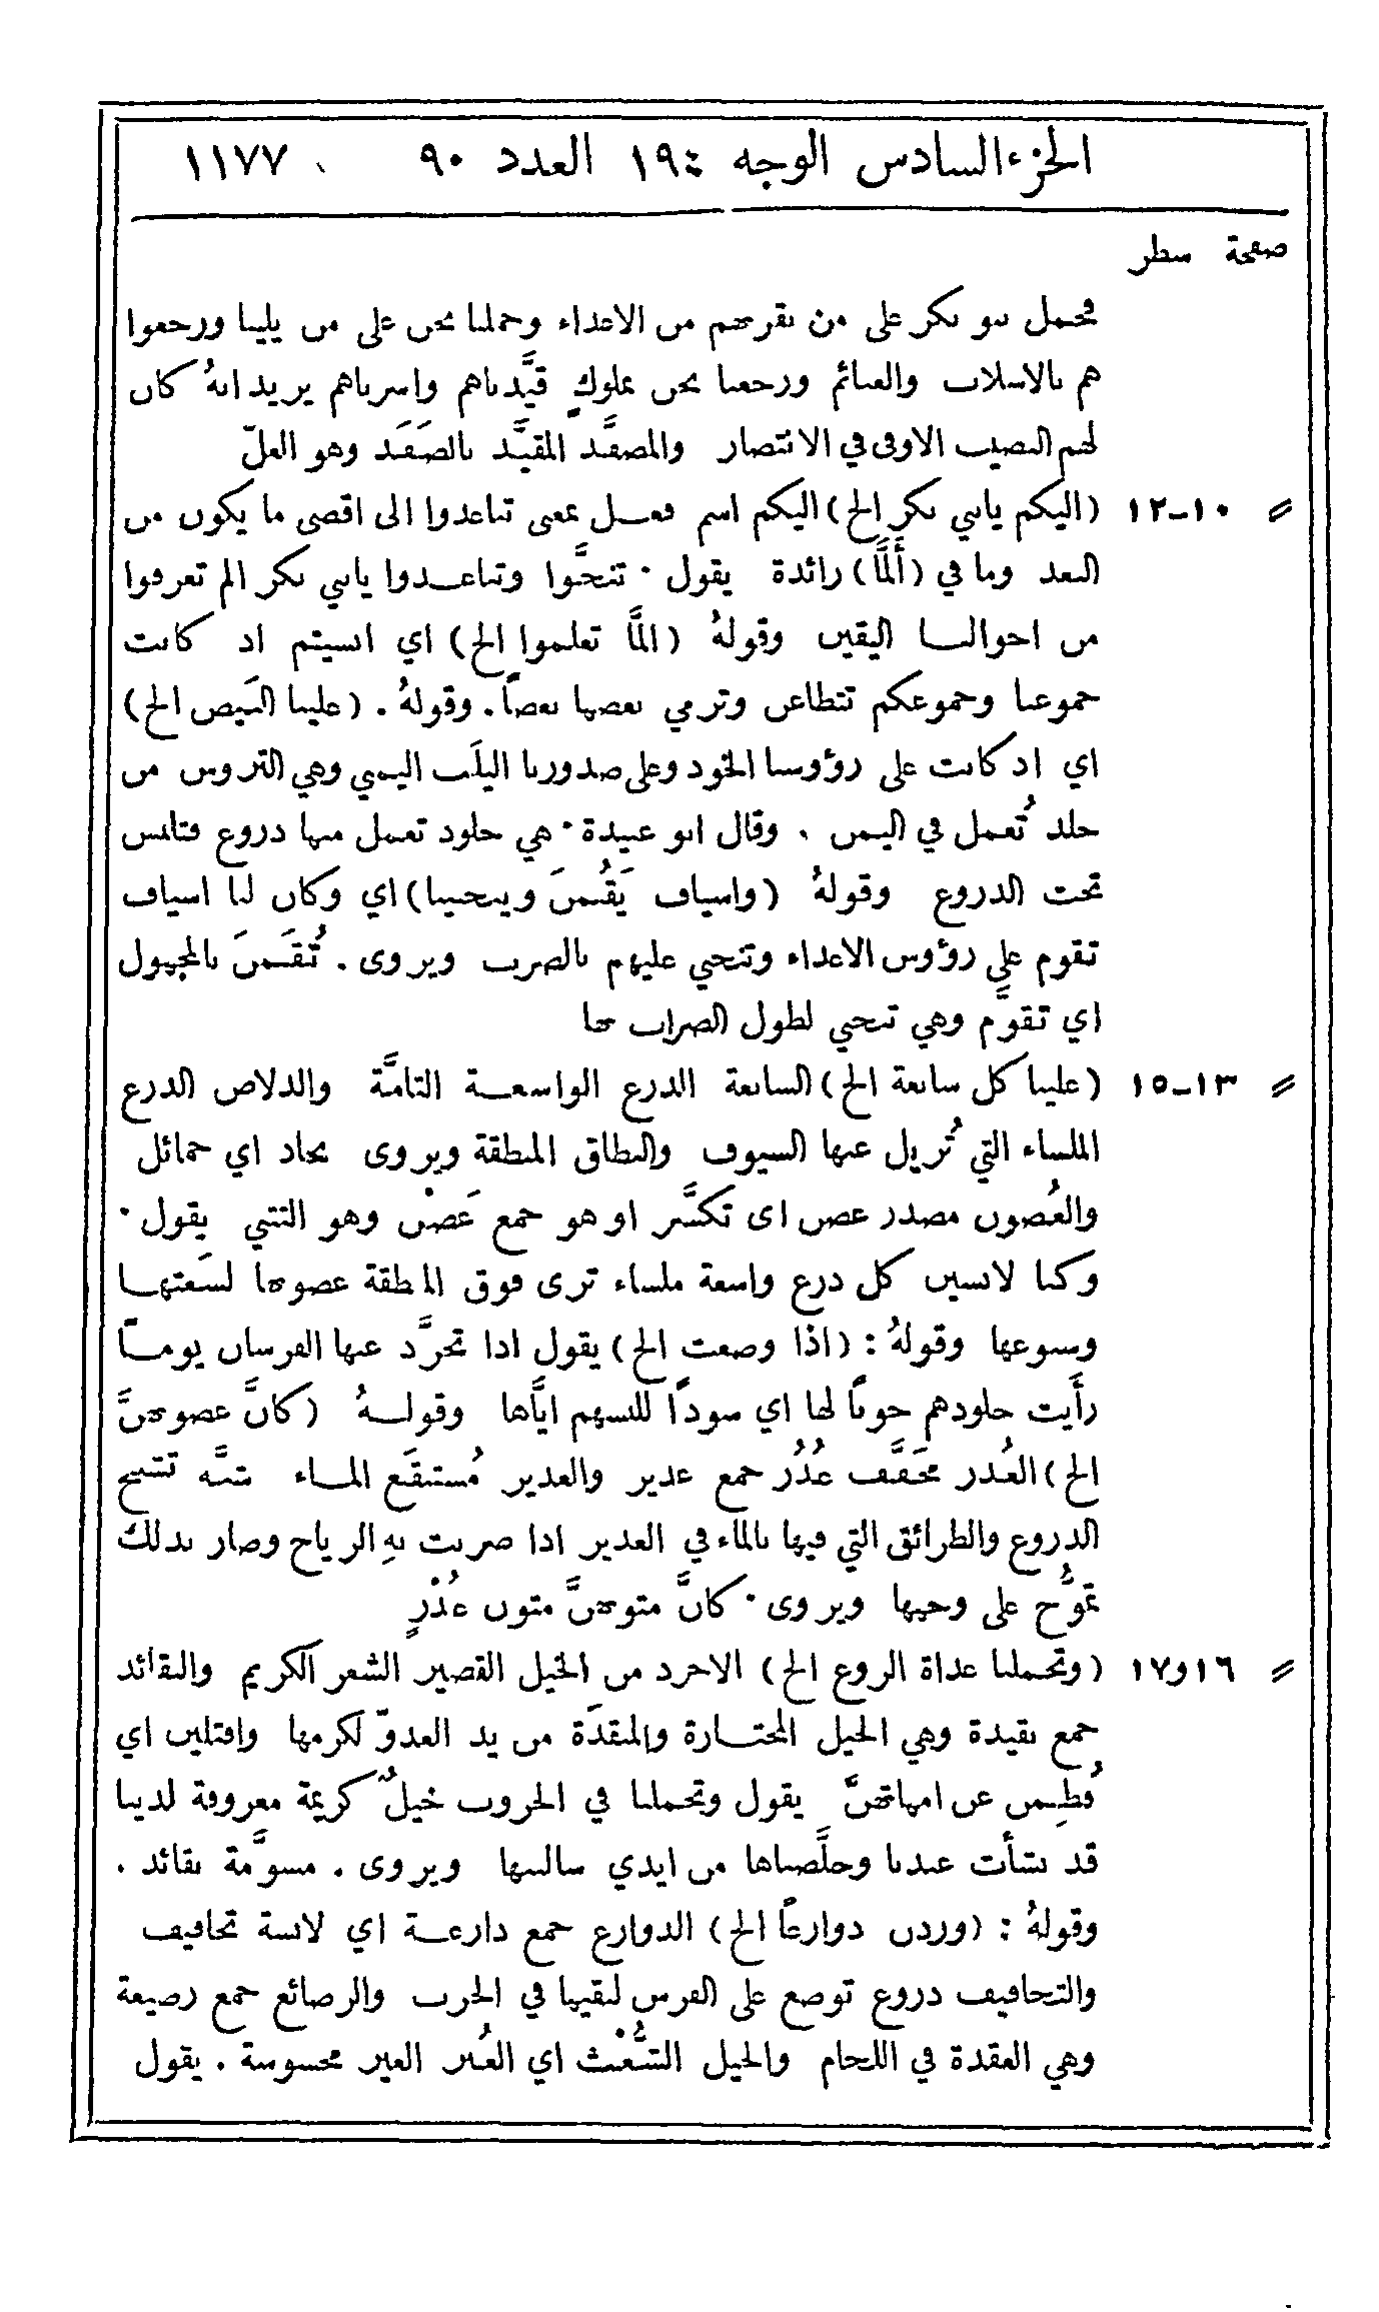 الجزء السادس الوجه ١٩٤ العدد ٩٠ ١١٧٧
صفحة سطر
فحمل بنو بكر على من بقربهم من الاعداء وحملنا نحن على من يلينا ورجعوا
هم بالاسلاب والغنائم ورجعنا نحن بملوكٍ قيَّدناهم واسرناهم يريد انهُ كان
لهم النصيب الاوفى في الانتصار والمصفَّد المقيَّد بالصَفَد وهو الغلّ
〃 ١٠-١٢ (اليكم يا بني بكر الخ) اليكم اسم فعل بمعنى تباعدوا الى اقصى ما يكون من
البعد وما في (أَلمَّا) زائدة يقول. تنحَّوا وتباعدوا يا بني بكر الم تعرفوا
من احوالنا اليقين وقولهُ (المَّا تعلموا الخ) اي انسيتم اذ كانت
جموعنا وجموعكم تتطاعن وترمي بعضها بعضاً. وقولهُ. (علينا البَيض الخ)
اي اذ كانت على رؤوسنا الخوذ وعلى صدورنا اليلَب اليمني وهي التروس من
جلد تُعمل في اليمن . وقال ابو عبيدة. هي جلود تعمل منها دروع فتلبس
تحت الدروع وقولهُ (واسياف يَقُمنَ وينحنينا) اي وكان لنا اسياف
تقوم على رؤوس الاعداء وتنحني عليهم بالضرب ويروى. تُقَمنَ بالمجهول
اي تقوَّم وهي تنحني لطول الضراب بها
〃 ١٣-١٥ (علينا كل سابغة الخ) السابغة الدرع الواسعة التامَّة والدلاص الدرع
الملساء التي تُزيل عنها السيوف والنطاق المنطقة ويروى نجاد اي حمائل
والغُضون مصدر غضن اى تكسَّر او هو جمع غَضْن وهو التثني يقول.
وكنا لابسين كل درع واسعة ملساء ترى فوق المنطقة غضونها لسَعتها
وسبوغها وقولهُ: (اذا وضعت الخ) يقول اذا تجرَّد عنها الفرسان يوماً
رأَيت جلودهم جوناً لها اي سوداً للبسهم ايَّاها وقولهُ (كانَّ غضونهنَّ
الخ) الغُدر مخفَّف غُدُر جمع غدير والغدير مُستنقَع الماء شبَّه تشنج
الدروع والطرائق التي فيها بالماء في الغدير اذا ضربت بهِ الرياح وصار بذلك
تموُّج على وجهها ويروى. كانَّ متونهنَّ متون غُدْرٍ
〃 ١٦و١٧ (وتحملنا غداة الروع الخ) الاجرد من الخيل القصير الشعر الكريم والنقائذ
جمع نقيذة وهي الخيل المختارة والمنقذَة من يد العدوّ لكرمها وافتلين اي
فُطِمن عن امهاتهنَّ يقول وتحملنا في الحروب خيلٌ كريمة معروفة لدينا
قد نشأت عندنا وخلَّصناها من ايدي سالبيها ويروى . مسوَّمة نقائذ .
وقولهُ: (وردن دوارعاً الخ) الدوارع جمع دارعة اي لابسة تجافيف
والتجافيف دروع توضع على الفرس لتقيها في الحرب والرصائع جمع رصيعة
وهي العقدة في اللجام والخيل الشُّعْث اي الغُبر الغير محسوسة . يقول